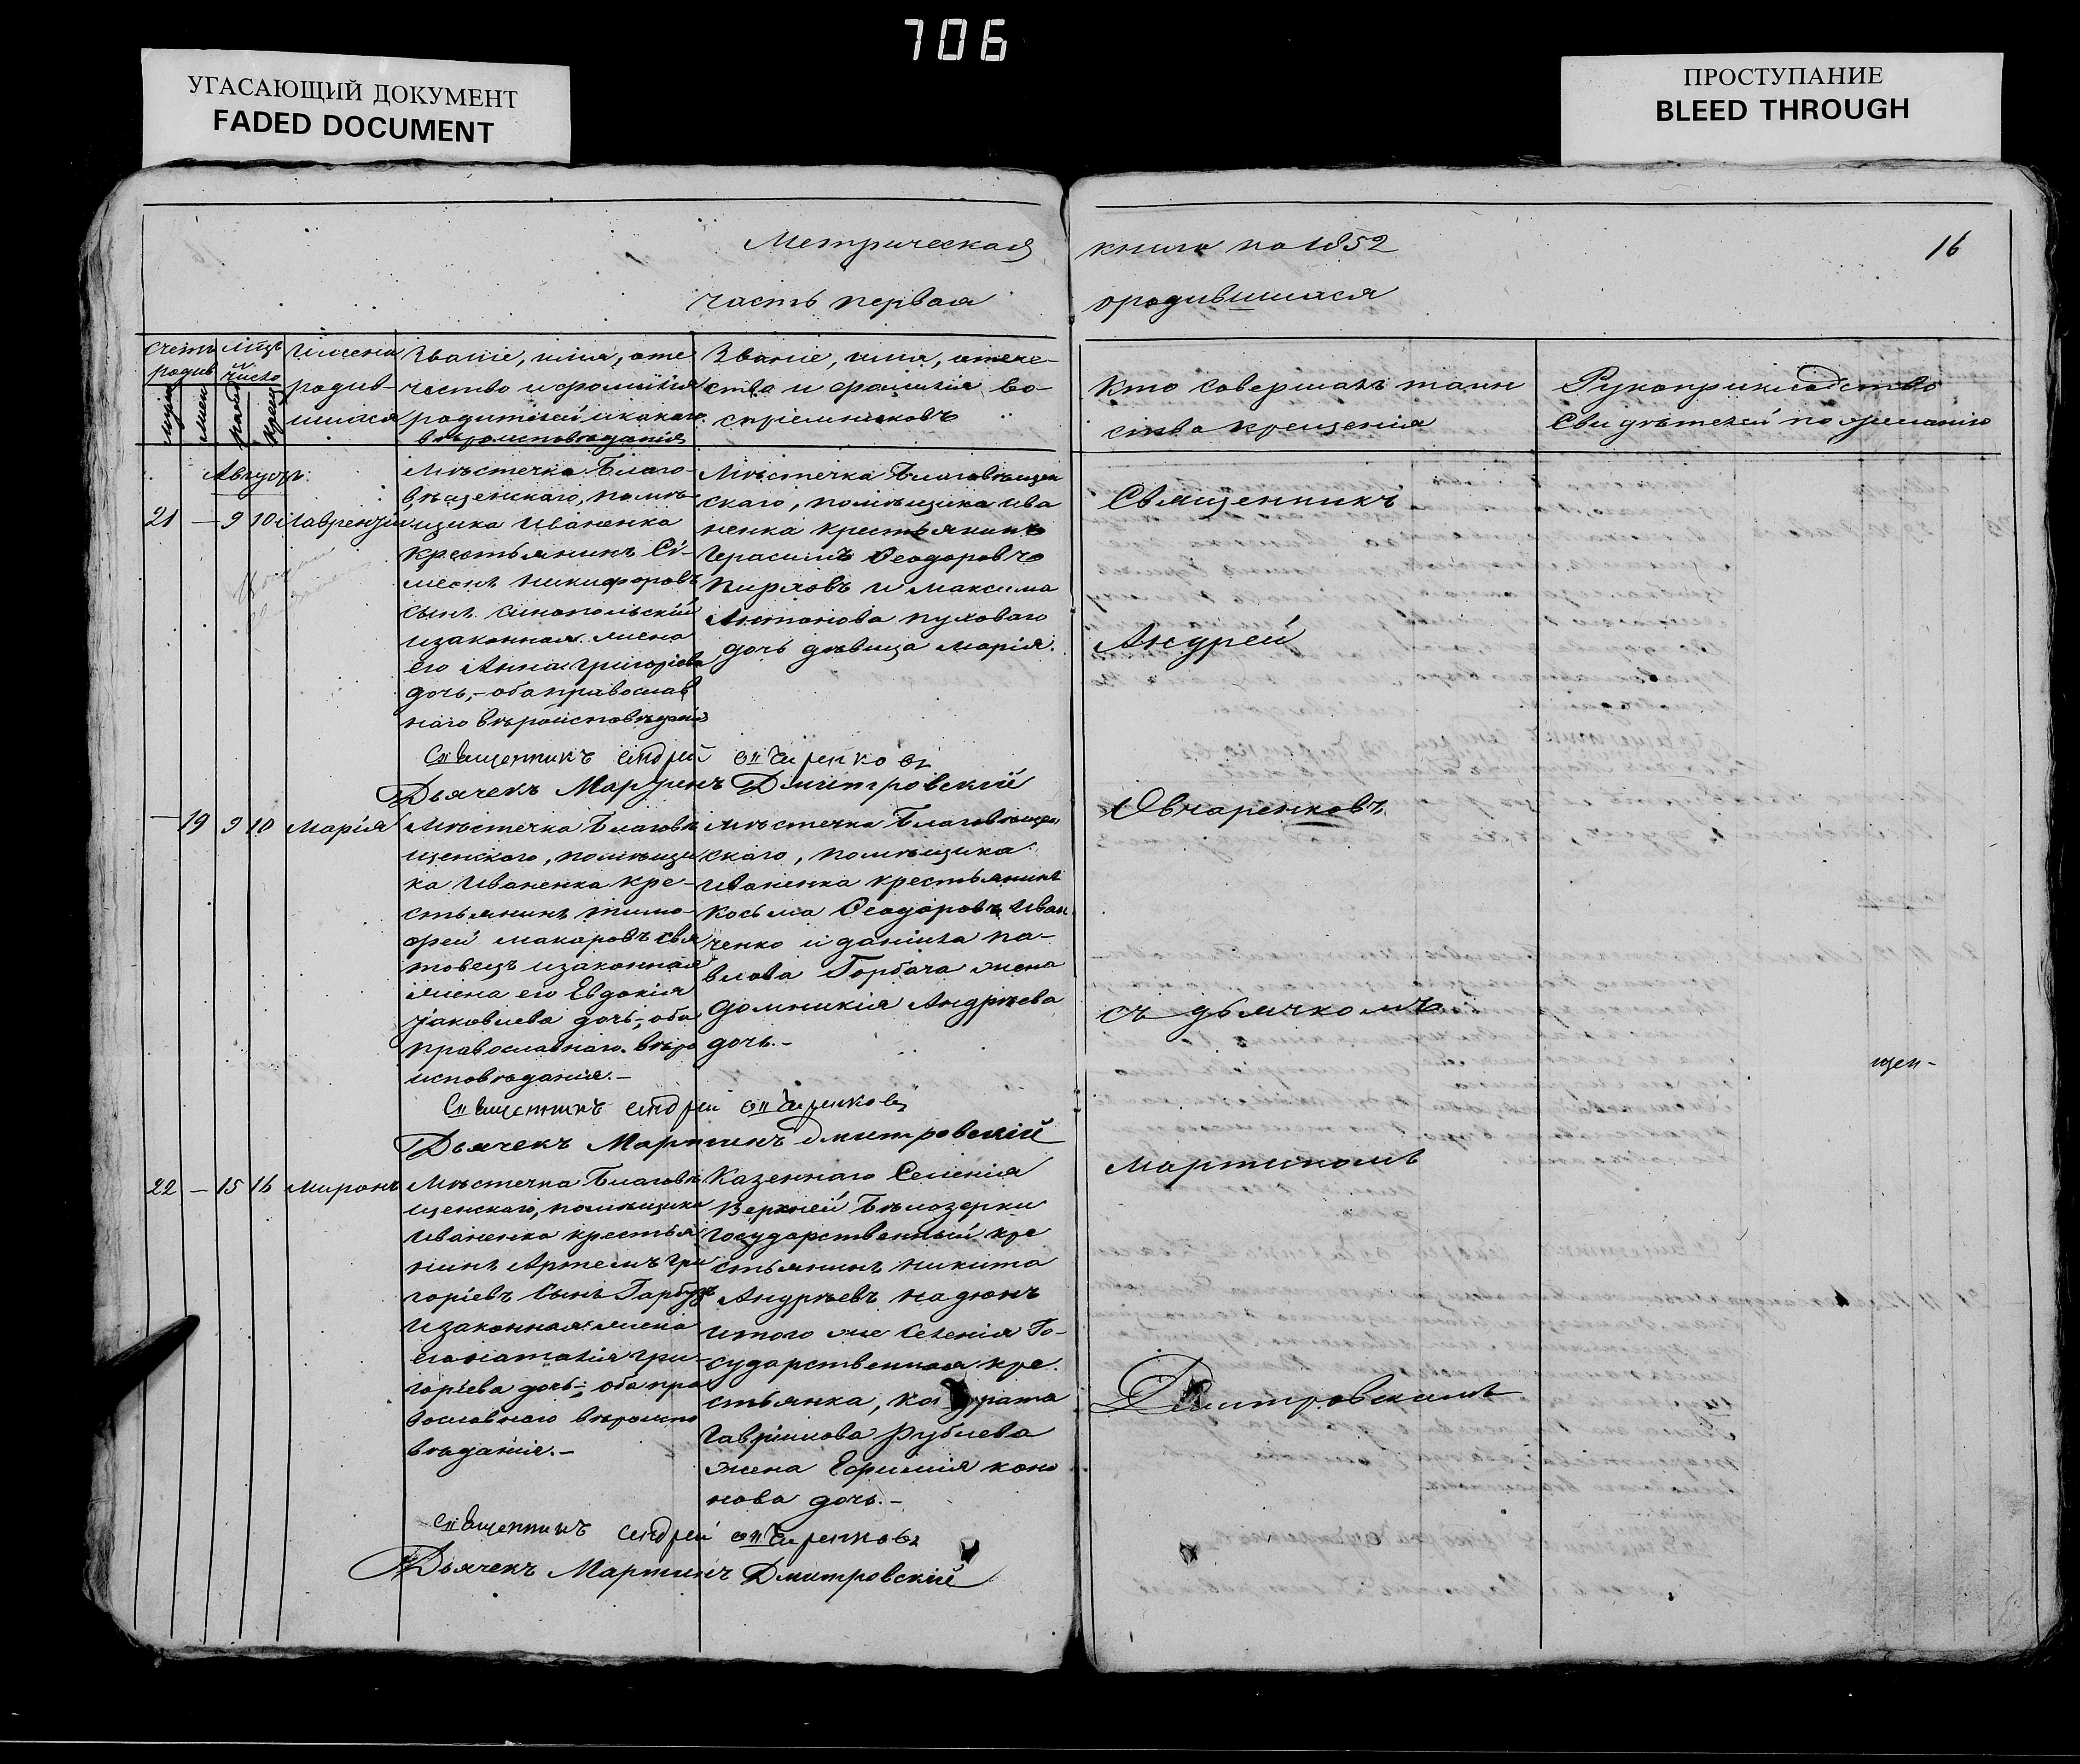 706
УГАСАЮЩИЙ ДОКУМЕНТ
FADED DOCUMENT
ПРОСТУПАНИЕ
BLEED THROUGH
Метрическая книга на 1852
16
часть первая о родившихся
счетъ родив
мѣсяцъ и число
рожд
крещ
Имена родив-
шихся
Званіе, имя, оте
чество и фамилія
родителей и какого
вѣроисповѣданія
Званіе, имя, отече-
ства и фамилія во-
спріемниковъ
Кто совершалъ таин
ства крещенія
Рукоприкладство
Свидѣтелей по желанію
Августъ
21 – 9 10 Лаврентій
Мѣстечка Благо-
вѣщенскаго, помѣ-
щика Иваненка
крестьянинъ Сі-
меонъ Никифоровъ
сынъ Синопольскій
и законная жена
его Анна Григоріева
дочь, – оба православ
наго вѣроисповѣданія
Мѣстечка Благовѣщен
скаго, помѣщика Ива
ненка крестьянинъ
Герасимъ Ѳеодоровъ
и Максима
Антонова Пуховаго
дочь дѣвица Марія.
Священникъ Андрей Овчаренковъ
Дьячекъ Мартинъ Дмитровскій
– 19 9 10 Марія
Мѣстечка Благовѣ
щенскаго, помѣщи
ка Иваненка кре-
стьянинъ Тимо-
фей Макаровъ Свя
товецъ и законная
жена его Евдокія
Іаковлева дочь; – оба
православнаго вѣро
исповѣданія. –
Мѣстечка Благовѣщен
скаго, помѣщика
Иваненка крестьянинъ
Косьма Ѳеодоровъ Иван
ченко и Даніила Па-
влова Горбача жена
Домникія Андрѣева
дочь. –
Священникъ Андрей Овчаренковъ
Дьячекъ Мартинъ Дмитровскій
22 – 15 16 Миронъ
Мѣстечка Благовѣ
щенскаго, помѣщика
Иваненка крестья
нинъ Артемъ Гри
горіевъ Сынъ Гарбузъ
и законная жена
его Наталія Гри-
горіева дочь; оба пра
вославнаго вѣроиспо
вѣданія. –
Казеннаго Селенія
Верхней Бѣлозерки
государственный кре
стьянинъ Никита
Андрѣевъ
и того же Селенія Го-
сударственная кре
стьянка, Кондрата
Гавріилова Рублева
жена Ефимія Коно
нова дочь. –
Священникъ Андрей Овчаренковъ
Дьячекъ Мартинъ Дмитровскій
Священникъ
Андрей
Овчаренковъ
съ дьячкомъ
Мартиномъ
Дмитровскимъ
щен-